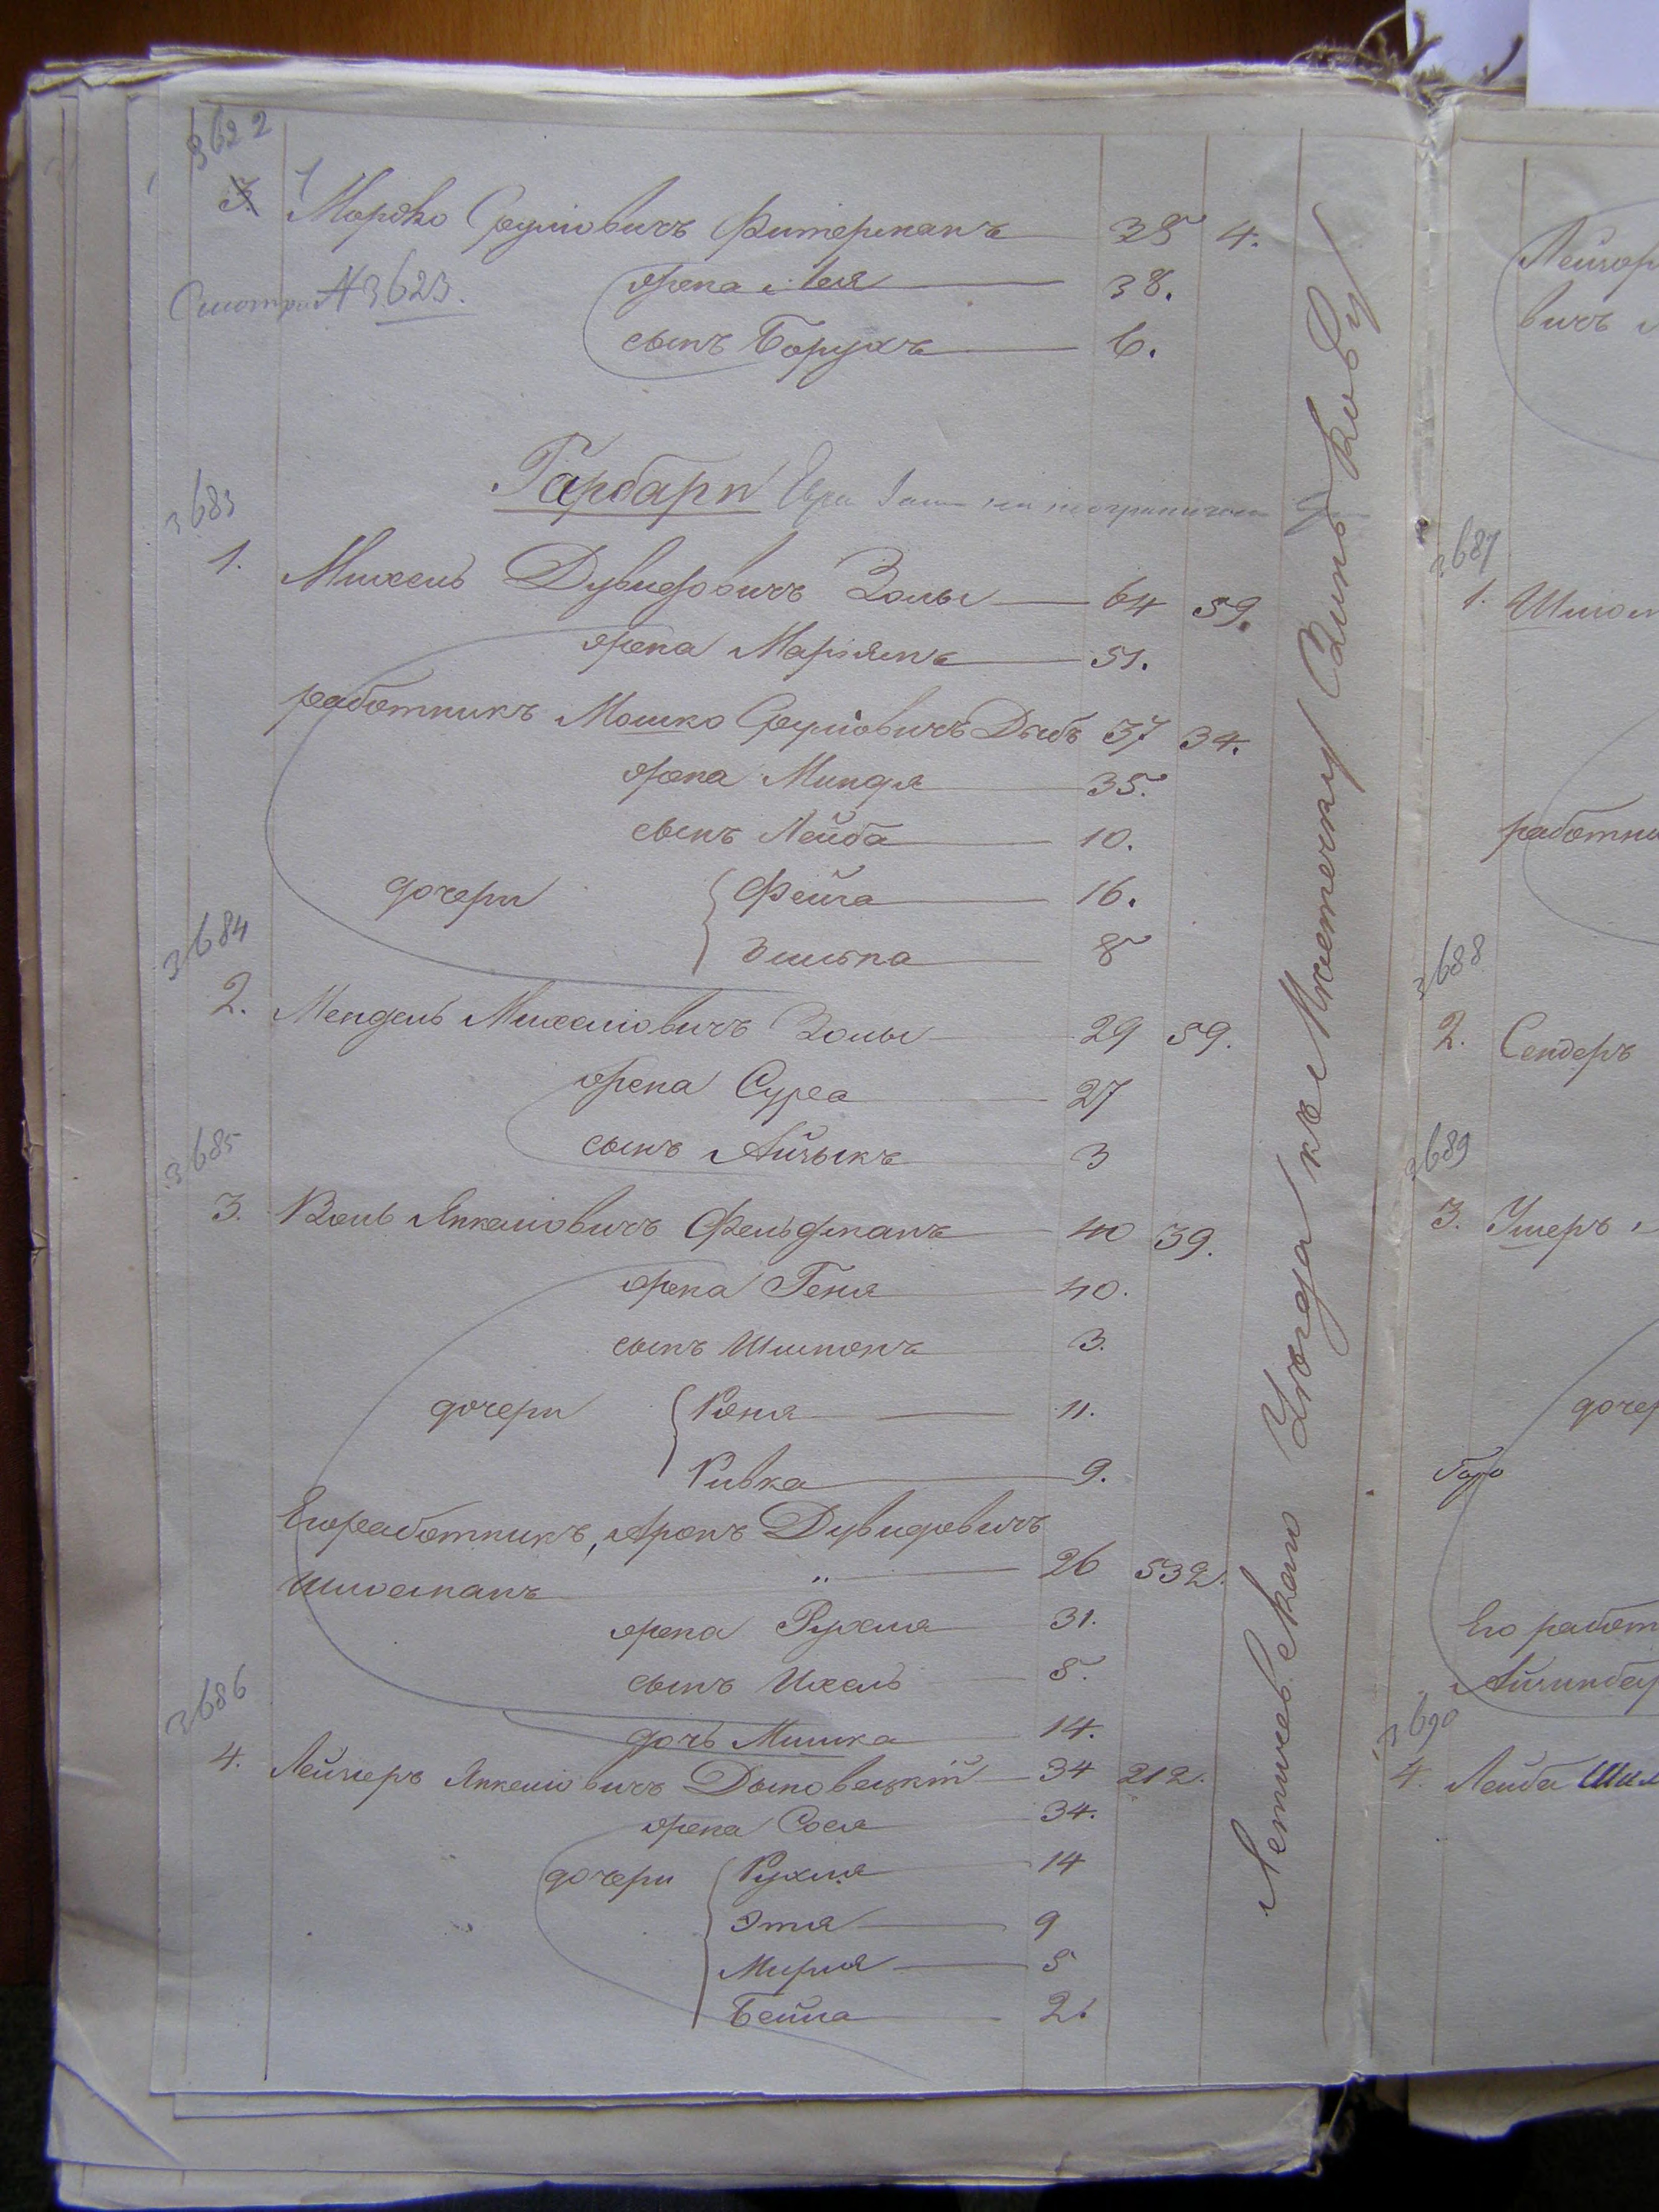 3622
3. Мордко Сруліовичъ Фитерманъ 38 4.
Смотри № 3623.
жена Лея 38.
сынъ Борухъ 6.
Гарбари
3683
1. Михель Дувидовичъ Золы 64 59.
жена Марьямъ 51.
работникъ Мошко Сруліовичъ Дыбъ 37 34.
жена Миндя 35.
сынъ Лейба 10.
дочери Фейга 16.
8
3684
2. Мендель Михеліовичъ Золы 29 59.
жена Сура 27
сынъ Айзыкъ 3
3685
3. Волъ Янкеліовичъ Фельдманъ 40 39.
жена Геня 40.
сынъ Шимонъ 3.
дочери Роня 11.
Ривка 9.
Его работникъ, Аронъ Дувидовичъ
Шлоеманъ " 26 532.
жена Рухля 31.
сынъ Ихель 5.
дочь Минка 14.
3686
4. Лейзеръ Янкеліовичъ Дыновецкій 34 212.
жена Сося 34.
дочери Рухля 14
Этля 9
Мирля 5
Бейла 2.
Летичевскаго Уѣзда къ Мѣстечку Зинькову
Лейзор
вичъ
3687
1. Шлом
работни
3688
2. Сендеръ
3689
3. Ушеръ
дочер
Его работ
Айзинбер
3690
4. Лейба Шм